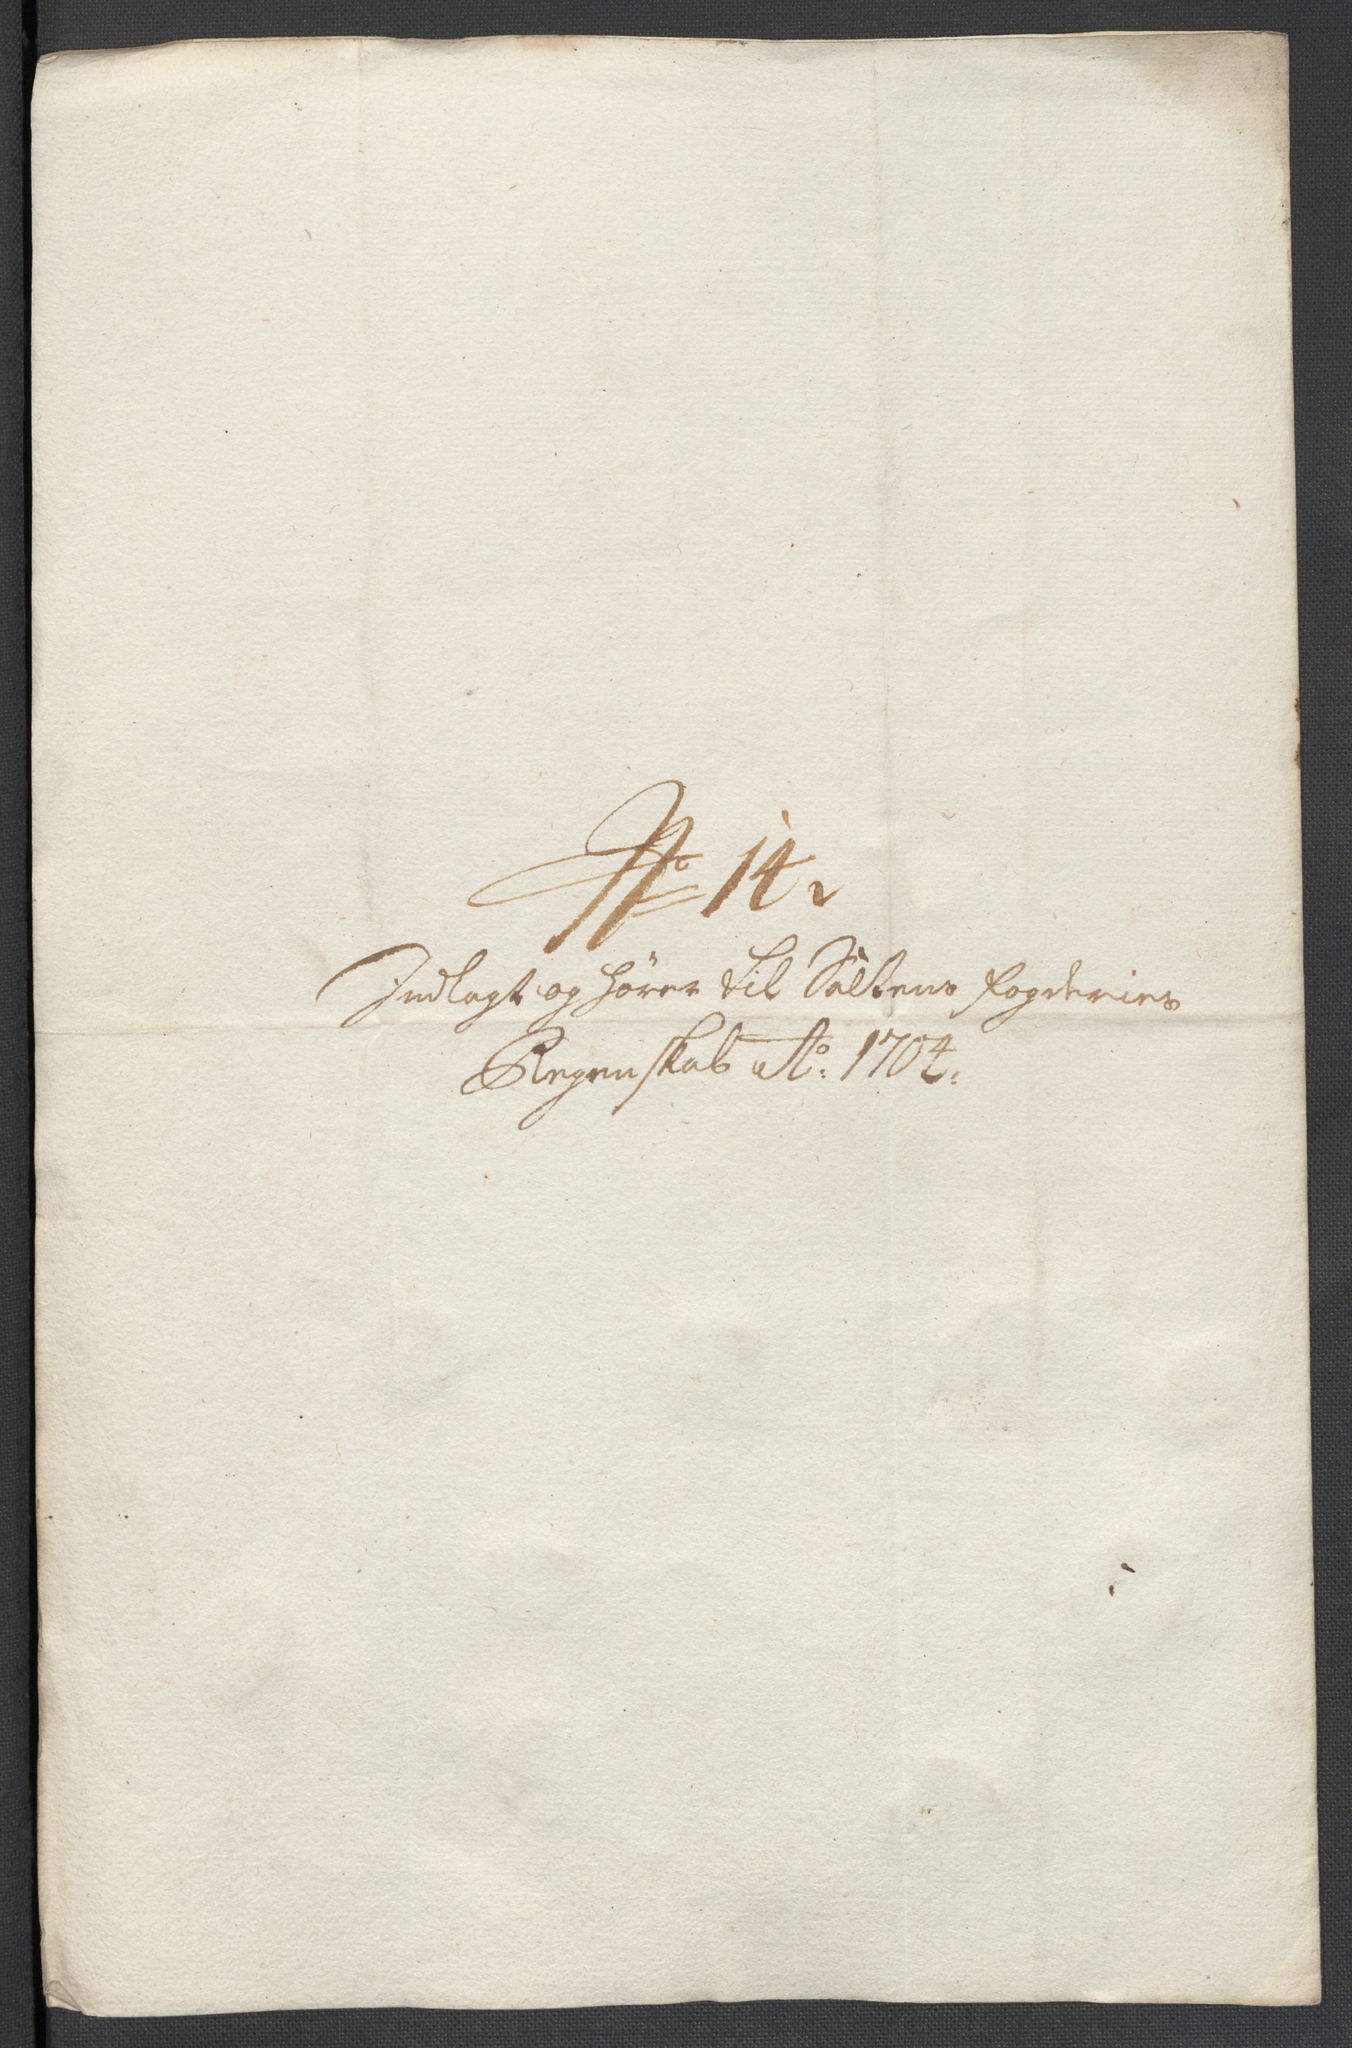 No 14.
Indlagt og hörer til Saltens fogderies
Regenskab Ao. 1704.